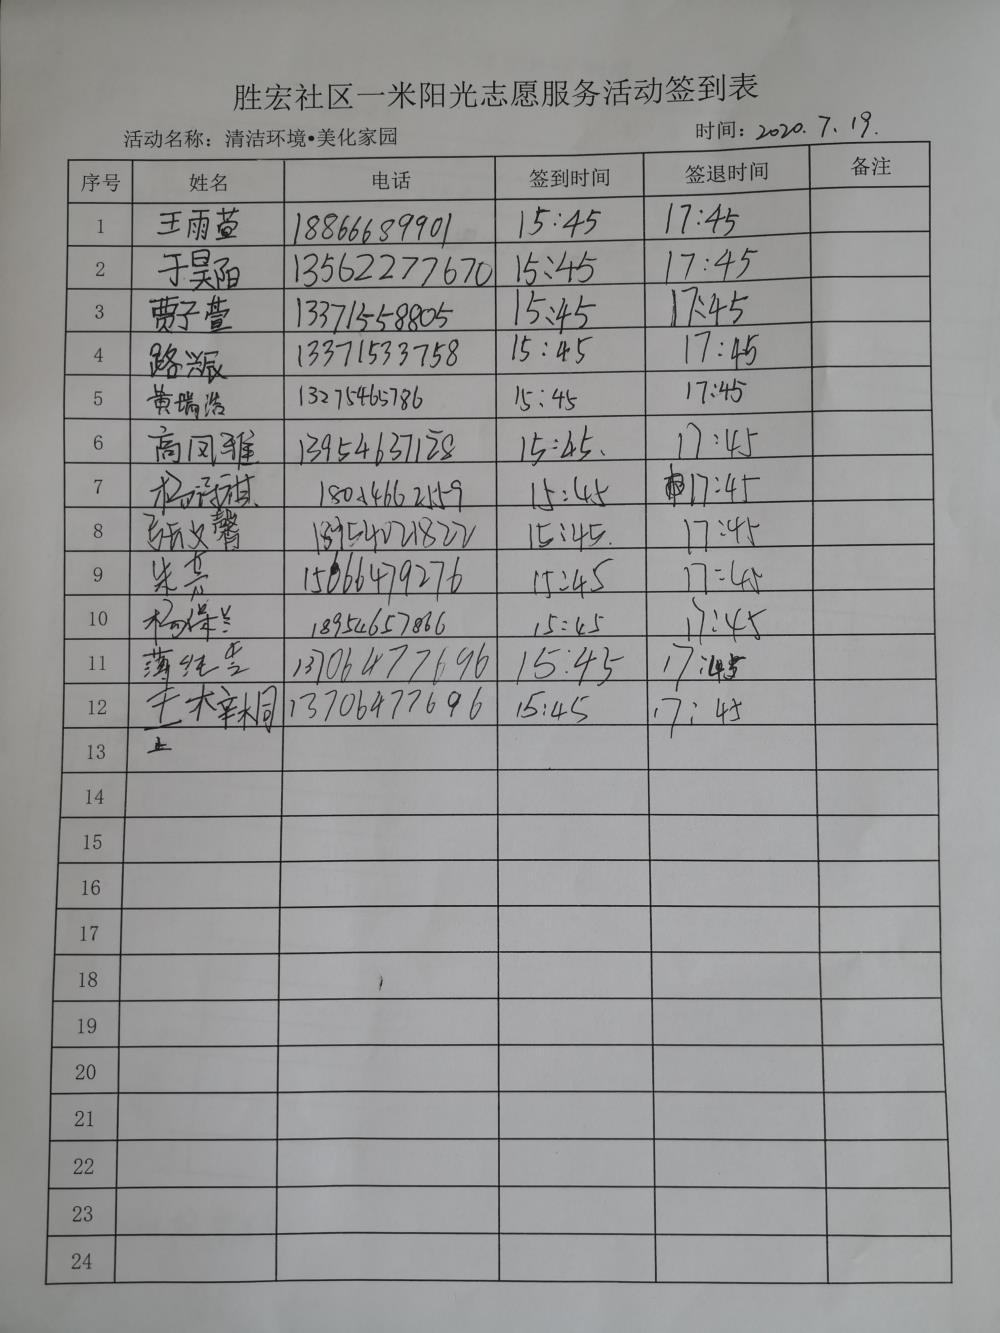 胜宏社区一米阳光志愿服务活动签到表
活动名称：清洁环境•美化家园 时间：2020.7.19.
序号 姓名 电话 签到时间 签退时间 备注
1 王雨萱 18866689901 15:45 17:45
2 于昊阳 13562277670 15:45 17:45
3 贾子萱 13371558805 15:45 17:45
4 路兴辰 13371533758 15:45 17:45
5 黄瑞浩 13275465786 15:45 17:45
6 高凤雅 15:45. 17:45
7 15:45 17:45
8 张文馨 15:45. 17:45
9 15066479276 15:45 17:45
10 杨保兰 18954657866 15:45 17:45
11 13706477696 15:45 17:45
12 13706477696 15:45 17:45
13
14
15
16
17
18
19
20
21
22
23
24